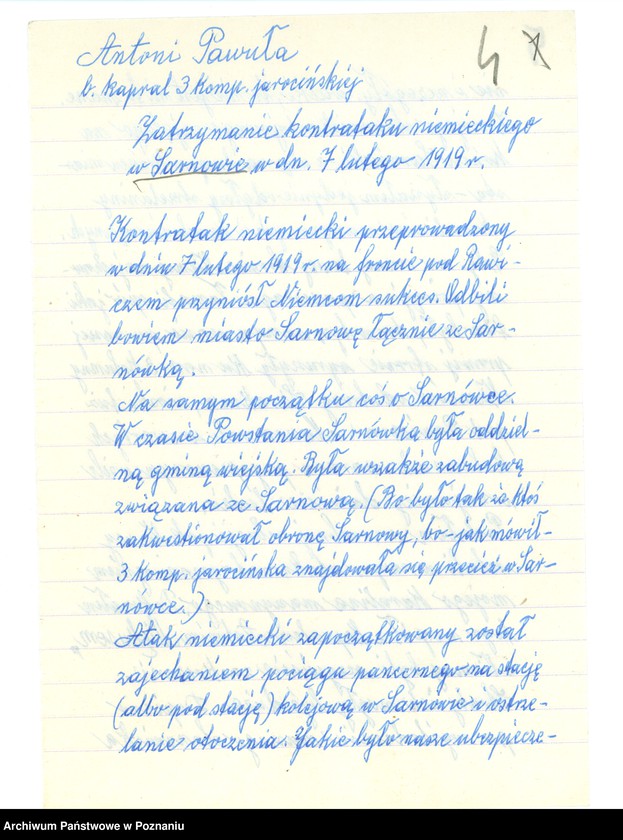 Antoni Pawuła
b. kapral 3 komp. jarocińskiej
4
Zatrzymanie kontrataku niemieckiego
w Sarnowie w dn. 7 lutego 1919 r.
Kontratak niemiecki przeprowadzony
w dniu 7 lutego 1919 r. na froncie pod Rawi-
czem przyniósł Niemcom sukces. Odbili
bowiem miasto Sarnowę łącznie ze Sar-
nówką.
Na samym początku coś o Sarnówce.
W czasie Powstania Sarnówka była oddziel-
ną gminą wiejską. Była wszakże zabudową
związana ze Sarnową. (Bo było tak że ktoś
zakwestionował obronę Sarnowy, bo - jak mówił -
3 komp. jarocińska znajdowała się przecież w Sar-
nówce.)
Atak niemiecki zapoczątkowany został
zajechaniem pociągu pancernego na stację
(albo pod stację) kolejową w Sarnowie i ostrze-
lanie otoczenia. Jakie było nasze ubezpiecze-
Archiwum Państwowe w Poznaniu